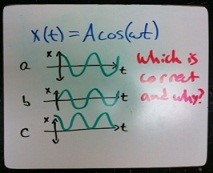 x(t) = A cos(ωt)
a x t
b x t
c x t
Which is
correct
and why?